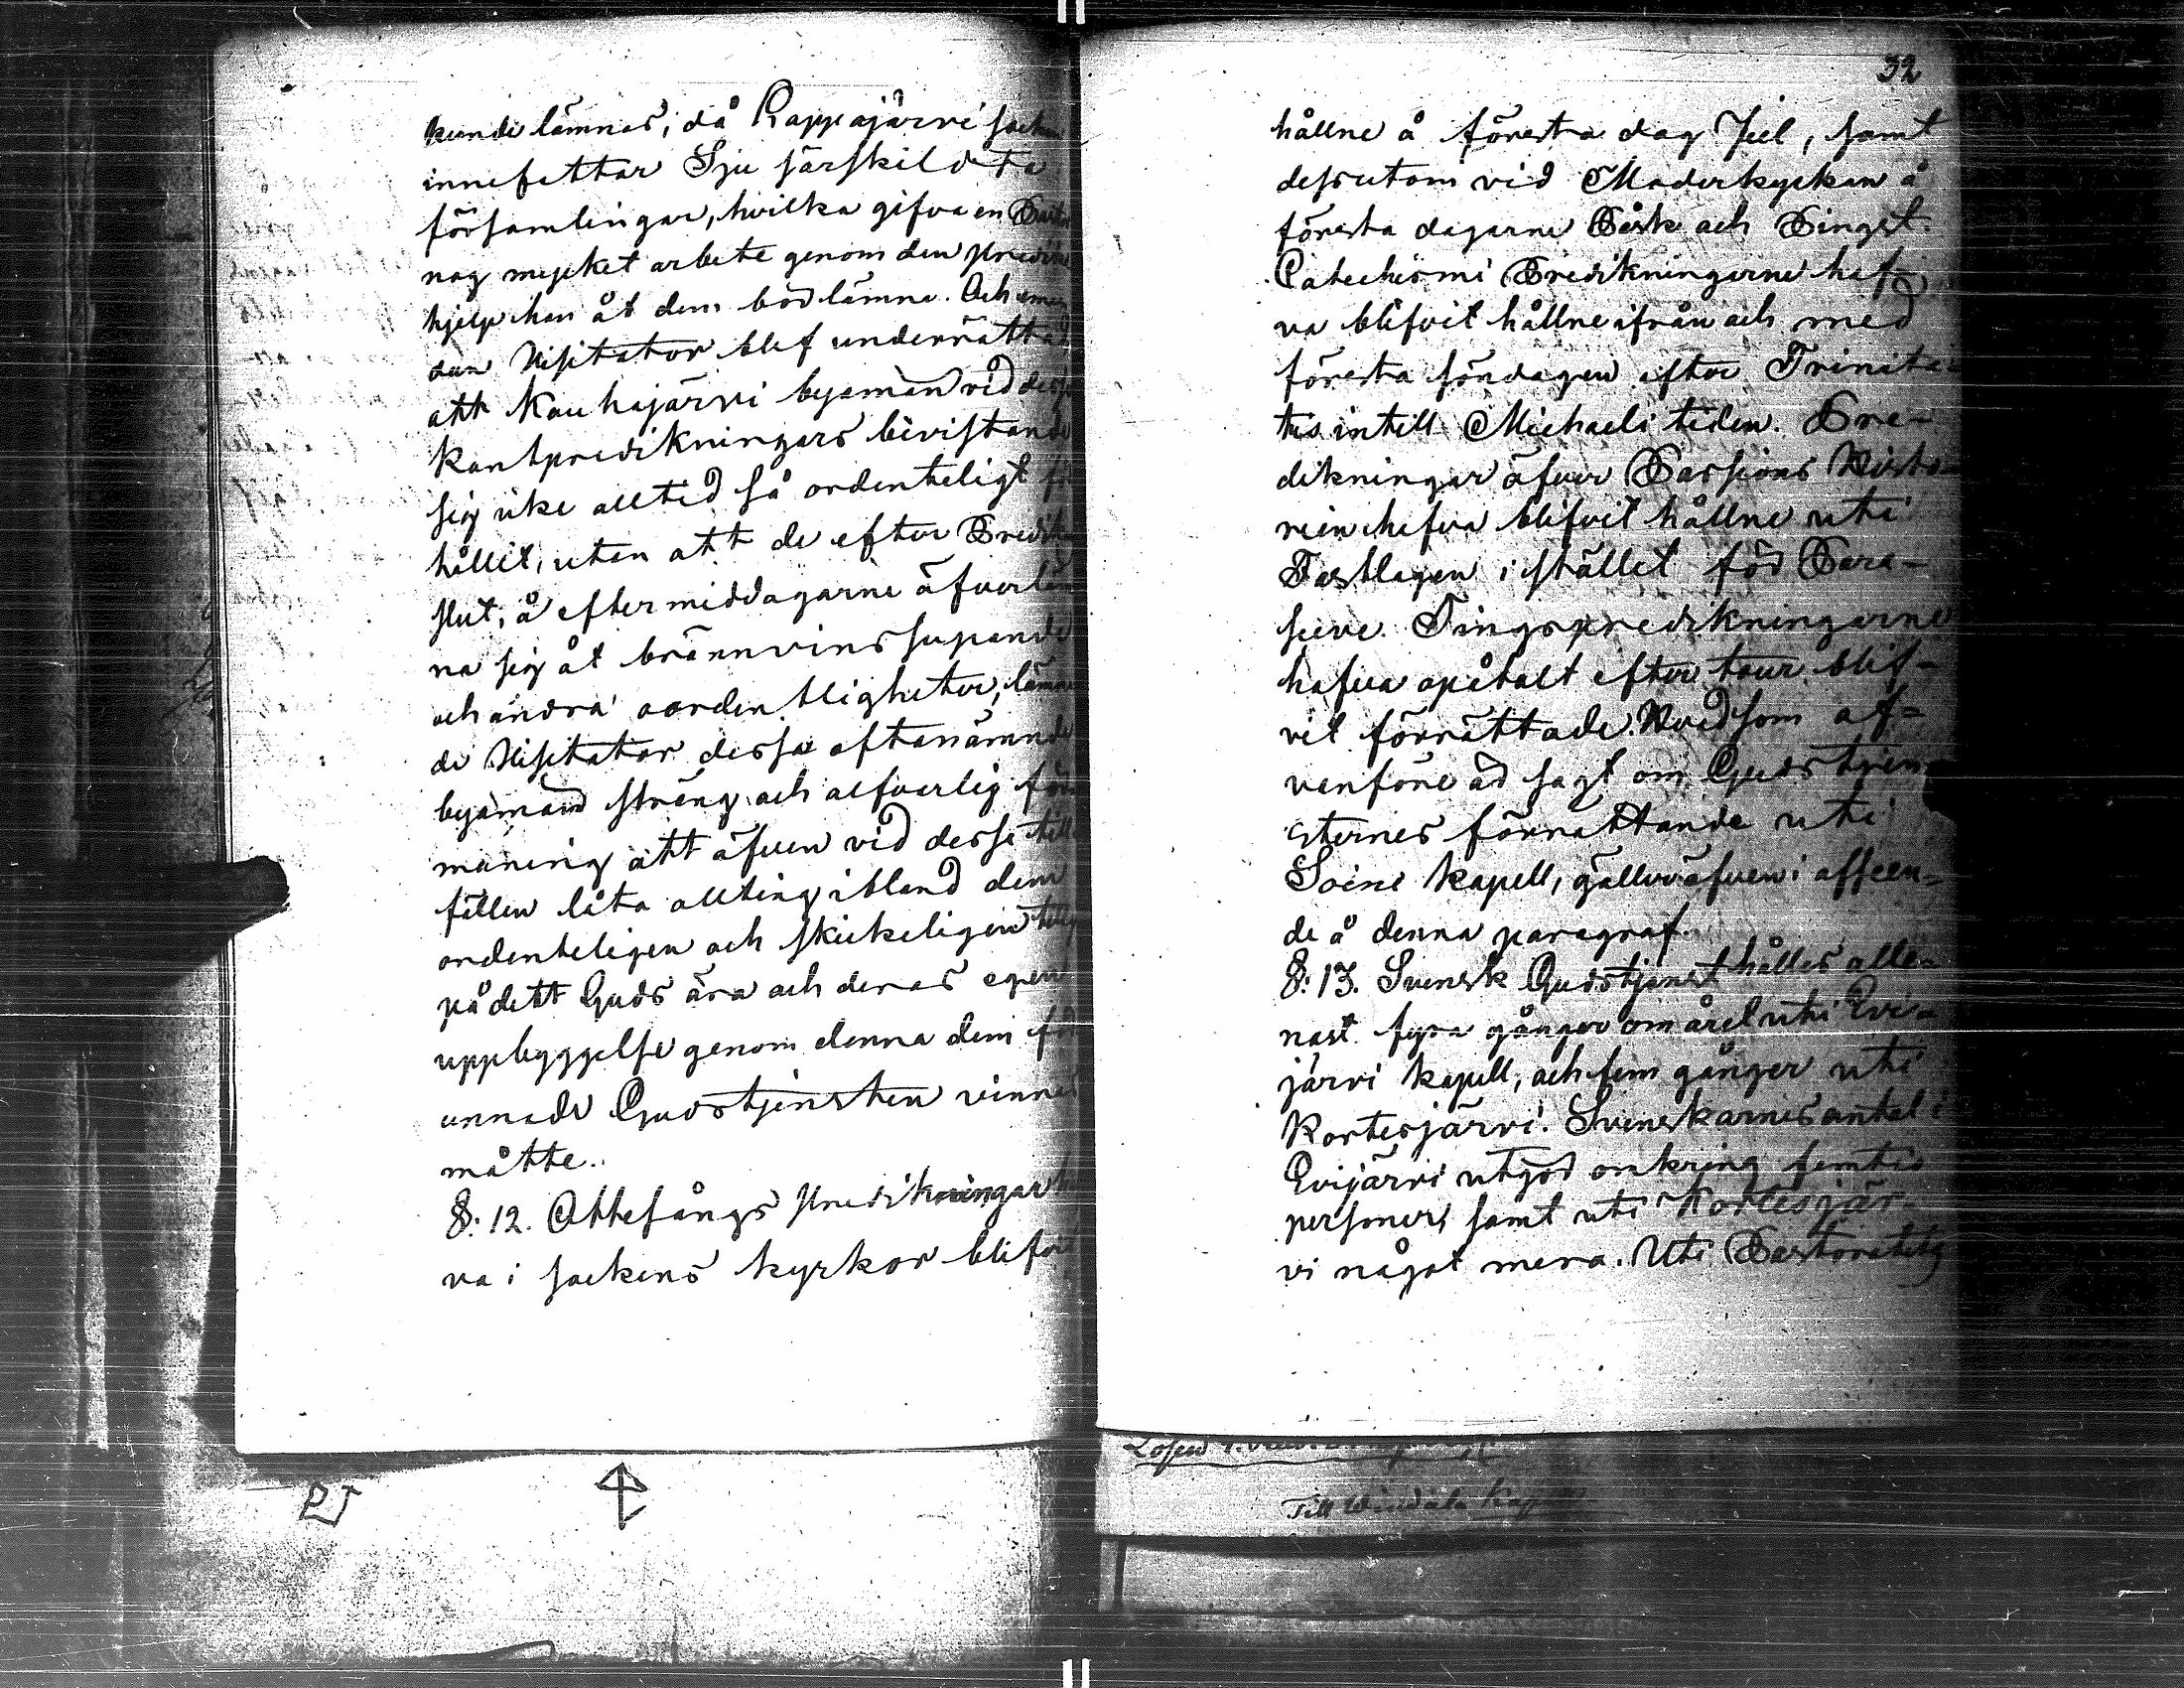 kunde lämnas, då Lappajärvi socken
innefattar Sju särskildta
församlingar, hvilka gifva en Pastor
nog mycket arbete genom den
hjelp han åt dem bör lämna. Och
dan Visitator blef underrättad
att Kauhajärvi byamän vid dessa
kantpredikningars bivistande
sig icke alltid så ordenteligt
hållit, utan att de efter
slut, å eftermiddagarne
na sig åt brännvins supande
och andra oordentligheter,
de Visitator dessa oftanämnde
byamän sträng och alfvarlig
maning att äfven vid dessa
fällen låta allting ibland dem
ordenteligen och skickeligen
på dett Guds ära och deras egen
uppbyggelse genom denna dem
unnade Gudstjensten vinnas
måtte.
§: 12. Ottesångs Predikningar
va i sockens kyrkor
32
hållne å första dag Jul, samt
dessutom vid Moderkyrkan å
första dagarne Påsk och Pingst.
Catechismi Predikningarne haf-
va blifvit hållne ifrån och med
första söndagen efter Trinita-
tis intill Michaeli tiden. Pre-
dikningar öfver Passions Histo-
rien hafva blifvit hållne uti
Fastlagen i stället för Para-
seve. Tingspredikningarne
hafva opåtalt efter tour blif-
vit förrättade. Hvad som of-
vanföre är sagt om Gudstjen-
sternes förrättande uti
Soini Kapell, gäller äfven i afseen-
de å denna paragraf.
§: 13. Svensk Gudstjenst hålles alle-
nast fyra gånger om året uti Evi-
järvi Kapell, och fem gånger uti
Kortesjärvi. Svenskarnes antal i
Evijärvi utgör omkring femtio
personer, samt uti Kortesjär-
vi något mera. Uti
Till Windala